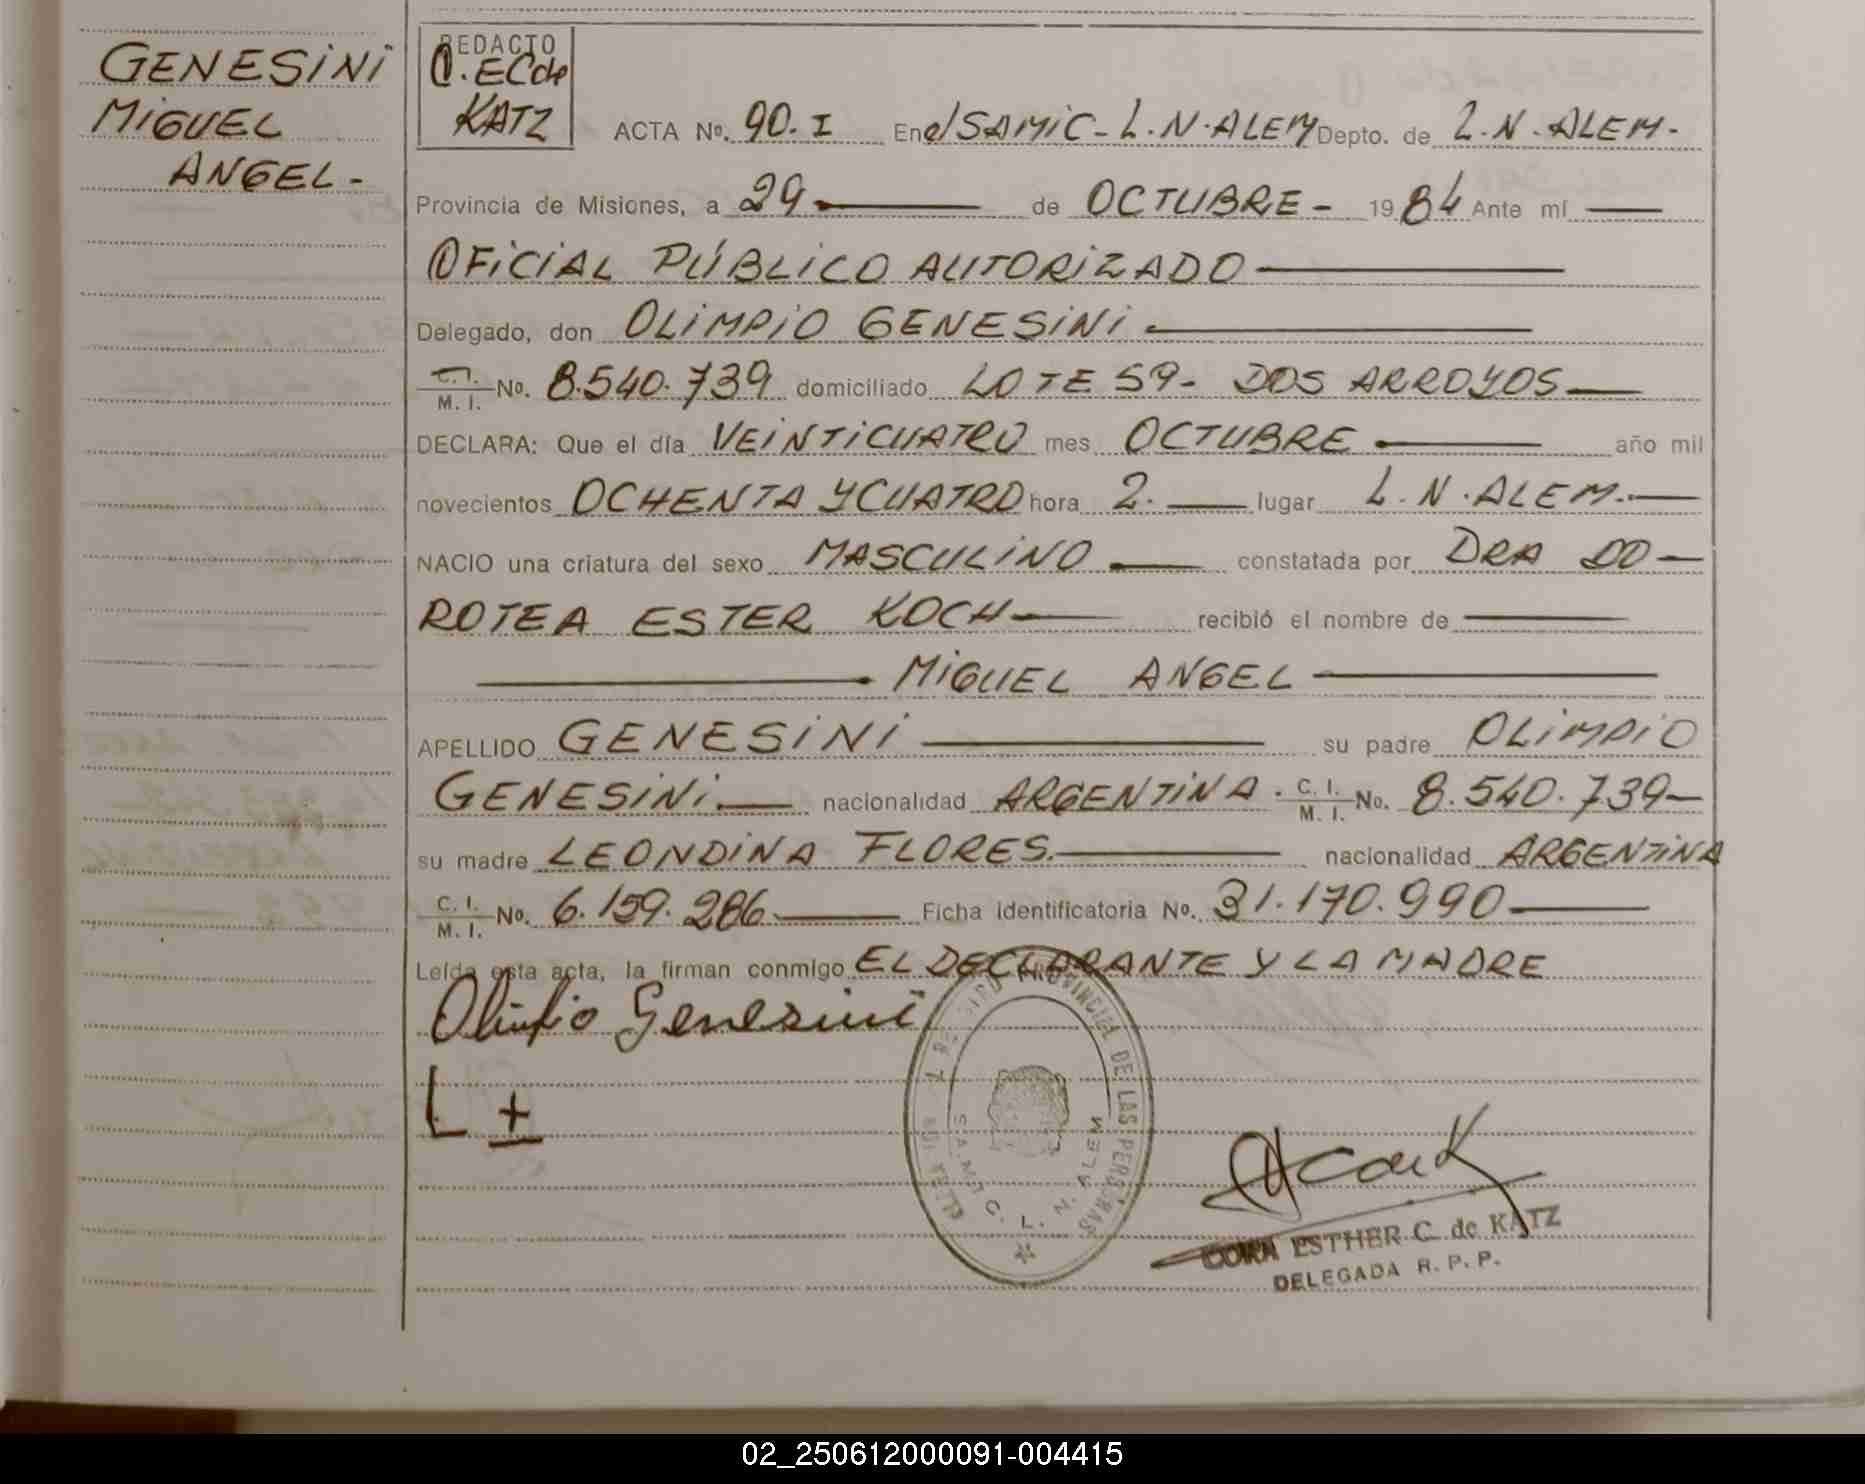 GENESINI
MIGUEL
ANGEL-
REDACTO
C. EC de
KATZ
ACTA No. 90. I En el SAMIC- L.N.ALEM Depto. de L.N.ALEM.
Provincia de Misiones, a 29 de OCTUBRE - 1984 Ante mí
OFICIAL PÚBLICO AUTORIZADO
Delegado, don OLIMPIO GENESINI
C.I. M. I. No. 8.540.739 domiciliado LOTE 59- DOS ARROYOS
DECLARA: Que el día VEINTICUATRO mes OCTUBRE año mil
novecientos OCHENTA Y CUATRO hora 2. lugar L.N.ALEM.
NACIO una criatura del sexo MASCULINO constatada por DRA DO-
ROTEA ESTER KOCH recibió el nombre de
MIGUEL ANGEL
APELLIDO GENESINI su padre OLIMPIO
GENESINI. nacionalidad ARGENTINA. C. I. M. I. No. 8.540.739
su madre LEONDINA FLORES. nacionalidad ARGENTINA
C. I. M. I. No. 6.159.286 Ficha identificatoria No. 31.170.990
Leída esta acta, la firman conmigo EL DECLARANTE Y LA MADRE
Olimpio Genesini
L +
REGISTRO PROVINCIAL DE LAS PERSONAS
S.A.M.I.C. L. N. ALEM
CORA ESTHER C. de KATZ
DELEGADA R. P. P.
02_250612000091-004415